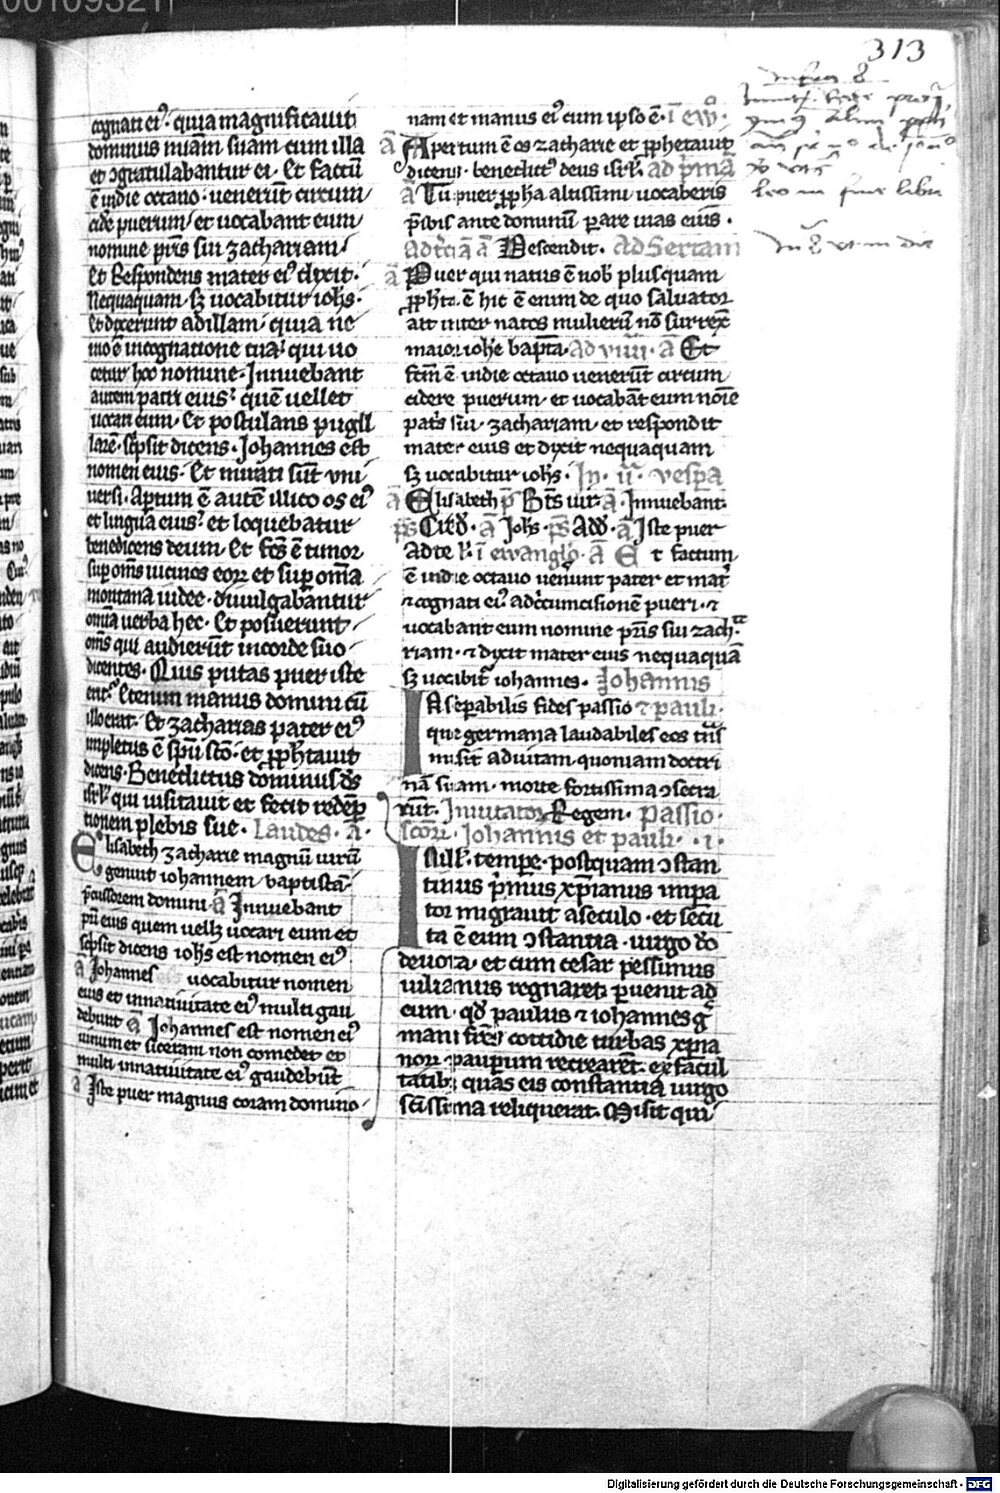 313
cognati ei᷒. quia magnificauit
dominus miām suam cum illa
et ɔgratulabantur ei. Et factū
ē indie octauo. uenerūt circum
cide puerum. et uocabant eum
nomine pr̄is sui zachariam.
Et Respondens mater ei᷒ dixit.
Nequaquam. sꝫ uocabitur ioh̄s.
Et dixerunt adillam. quia ne
mo ē incognatione tua. qui uo
cetur hoc nomine. Innuebant
autem patri eius. quē uellet
uocari eum. Et postulans pugil
larē. sc̄psit dicens. Johannes est
nomen eius. Et mirati sūt vni
uersi. Aꝑtum ē autē illico os ei᷒
et lingua eius. et loquebatur
benedicens deum. Et fcs̄ ē timor
suꝑ oms̄ uicinos eoꝝ et suꝑ om̄a
montana iudee. diuulgabantur
om̄ia uerba hec. Et posuerunt
oms̄ qui audierūt incorde suo
dicentes. Quis putas puer iste
erit. Etenim manus domini cū
illo erat. Et zacharias pater ei᷒
impletus ē spū sc̄o. et ꝓph̄tauit
dicens. Benedictus dominus ds̄
isrl̄. qui uisitauit et fecit redēp
tionem plebis sue. Laudes. a̅.
Elisabeth zacharie magnū uirū
genuit iohannem baptistā.
p̄cussorem domini. a̅ Innuebant
pr̄i eius quem uellꝫ uocari eum et
sc̄psit dicens ioh̄s est nomen ei᷒
a̅ Johannes uocabitur nomen
eius et innatiuitate ei᷒ multi gau
debunt a̅ Johannes est nomen ei᷒
uinum et siceram non comedet et
multi innatiuitate ei᷒ gaudebūt
a̅ Iste puer magnus coram domino
nam et manus ei᷒ cum ipso ē. i ew̄o.
a̅ Apertum ē os zacharie et ꝓphetauit
dicens. benedict᷒ deus isrl̄. ad p̄mā
a̅ Tu puer ꝓpha altissimi uocaberis
p̄ibis ante dominū ꝑare uias eius.
Ad t̄ciā a̅ Descendit. Ad Sextam
a̅ Puer qui natus ē nob̄ plusquam
ꝓph̄a. ē hic ē enim de quo saluator
ait inter natos mulierū nō surrex̄
maior ioh̄e bapt̄a. ad viiii. a̅ Et
fcm̄ ē indie octauo uenerūt circum
cidere puerum. et uocabāt eum noīe
pat̄s sui. zachariam. et respondit
mater eius et dixit nequaquam
sꝫ uocabitur ioh̄s. In. ii. vesꝑa
a̅ Elisabeth p̄s Bt̄s uir. a̅. Innuebant.
p̄s Cred̄. a̅ Joh̄s. p̄s Ad d̄. a̅ Iste puer
Ad te l. i ewangl̄o. a̅ Et factum
ē indie octauo uenerunt pater et mat̄
⁊ cognati ei᷒ ad c̄cumcisionē pueri. ⁊
uocabant eum nomine pr̄is sui zacha
riam. ⁊ dixit mater eius nequaquā
sꝫ uocabit᷑ iohannes. Johannis
INseparabilis fides passio ⁊ pauli.
que germana laudabiles eos
misit aduitam. quoniam doctri
nā suam. morte fortissima ɔsecra
rūt. Inuitator. Regem. Passio.
scoꝝ. Johannis et pauli. .i.
Ill. tempe. postquam ɔstan
tinus p̄mus xp̄ianus impa
tor migrauit aseculo. et secu
ta ē eum ɔstantia. uirgo dō
deuota. et cum cesar pessimus
iulianus regnaret. ꝑuenit ad
eum. qd̄ paulus ⁊ iohannes
mani frēs cottidie turbas xp̄ia
noꝝ. pauꝑum recrearet. exfacul
tatibꝫ. quas eis constantia uirgo
sc̄issima reliquerat. Misit qui
Digitalisierung gefördert durch die Deutsche Forschungsgemeinschaft - DFG